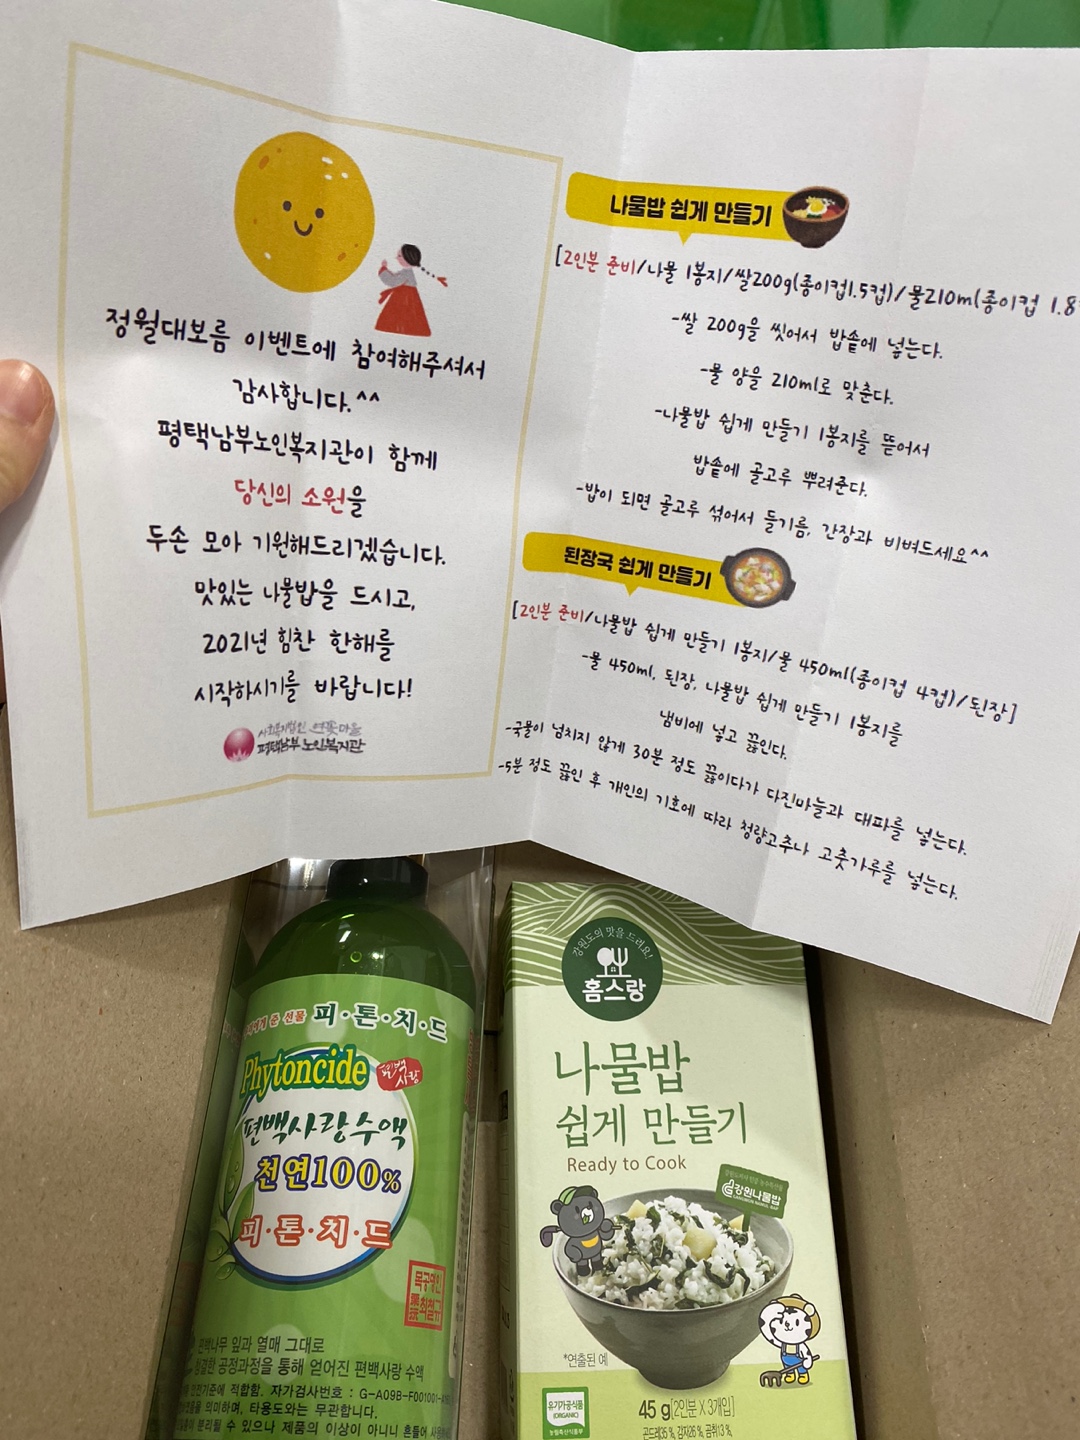 정월대보름 이벤트에 참여해주셔서
감사합니다.^^
평택남부노인복지관이 함께
당신의 소원을
두손 모아 기원해드리겠습니다.
맛있는 나물밥을 드시고,
2021년 힘찬 한해를
시작하시기를 바랍니다!
사회복지법인 연꽃마을
평택남부 노인복지관
나물밥 쉽게 만들기
[2인분 준비/나물 1봉지/쌀200g(종이컵1.5컵)/물210m(종이컵 1.8
-쌀 200g을 씻어서 밥솥에 넣는다.
-물 양을 210ml로 맞춘다.
-나물밥 쉽게 만들기 1봉지를 뜯어서
밥솥에 골고루 뿌려준다.
-밥이 되면 골고루 섞어서 들기름, 간장과 비벼드세요^^
된장국 쉽게 만들기
[2인분 준비/나물밥 쉽게 만들기 1봉지/물 450ml(종이컵 4컵)/된장]
-물 450ml, 된장, 나물밥 쉽게 만들기 1봉지를
냄비에 넣고 끓인다.
-국물이 넘치지 않게 30분 정도 끓이다가 다진마늘과 대파를 넣는다.
-5분 정도 끓인 후 개인의 기호에 따라 청량고추나 고춧가루를 넣는다.
준 선물 피·톤·치·드
Phytoncide
편백사랑
편백사랑수액
천연100%
피·톤·치·드
편백나무 잎과 열매 그대로
청결한 공정과정을 통해 얻어진 편백사랑 수액
안전기준에 적합함. 자가검사번호 : G-A09B-F001001-
의미하며, 타용도와는 무관합니다.
분리될 수 있으나 제품의 이상이 아니니 흔들어
강원도의 맛을 드려요!
홈스랑
나물밥
쉽게 만들기
Ready to Cook
강원나물밥
*연출된 예
유기가공식품
(ORGANIC)
농림축산식품부
45g[2인분 X 3개입]
곤드레35%, 감자26%, 곰취13%,